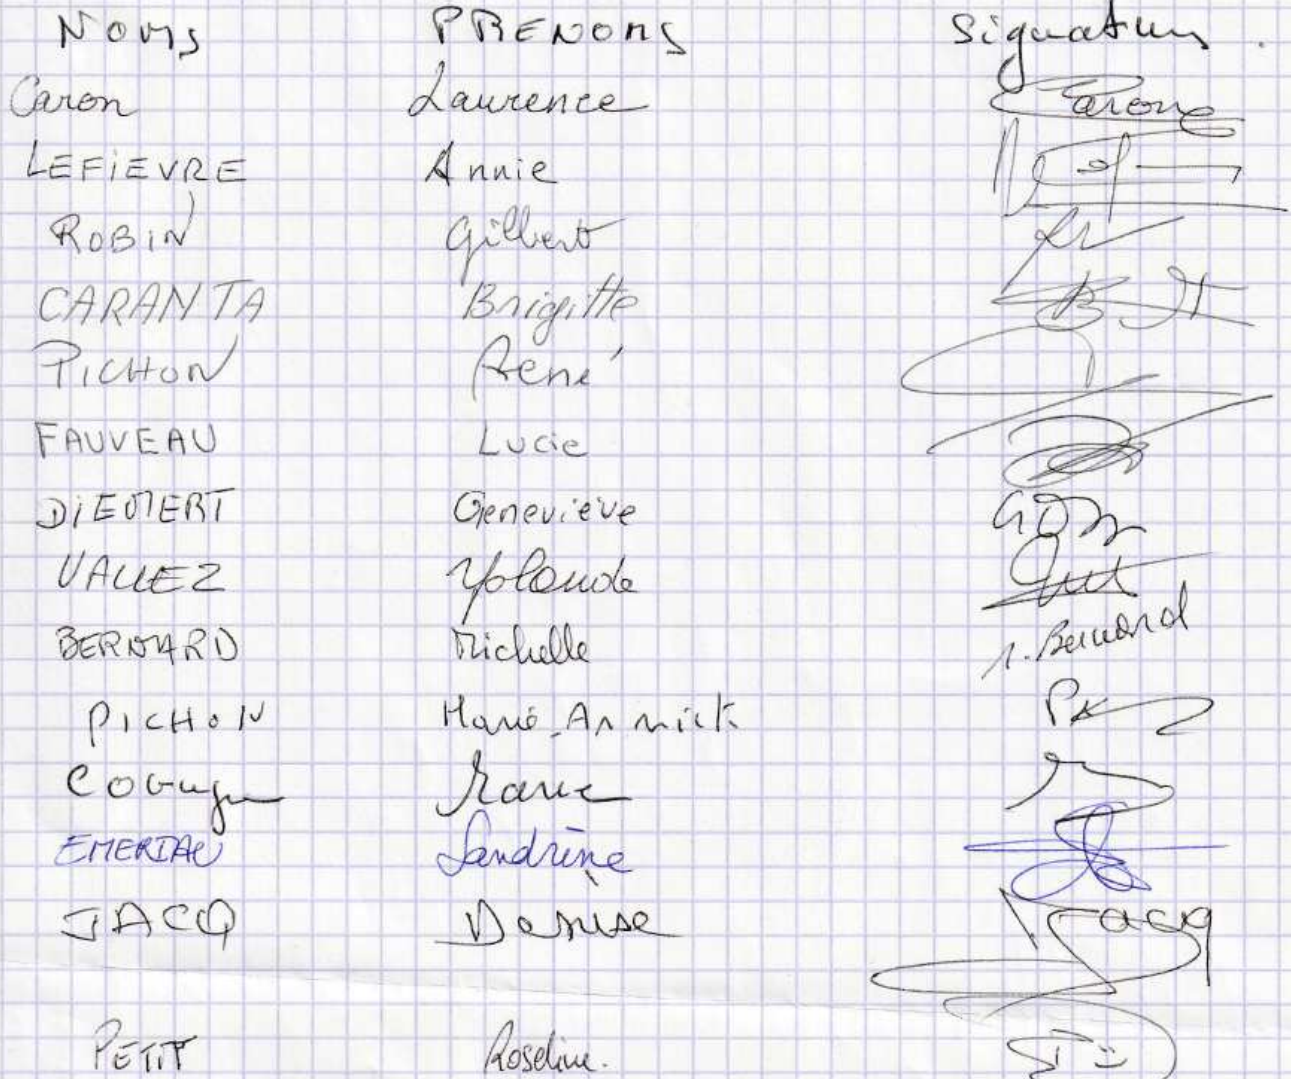 NOMS PRENOMS Signatures
Caron Laurence Caron
LEFIEVRE Annie
ROBIN Gilbert
CARANTA Brigitte
PICHON René
FAUVEAU Lucie
DIEMERT Geneviève
VALLEZ Yolande
BERNARD Michelle M. Bernard
PICHON Marie-Annick
Marie
EMERIAU Sandrine
JACQ Denise Jacq
PETIT Roseline.